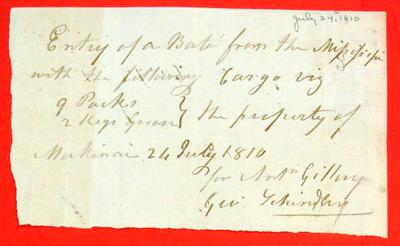 July 24, 1810
Entry of a Bate from the Missisipi
with the following Cargo viz
9 Packs
2 Kegs Grease } the property of
Mackinac 24 July 1810
for Antn Gillory
Geo. Schindler